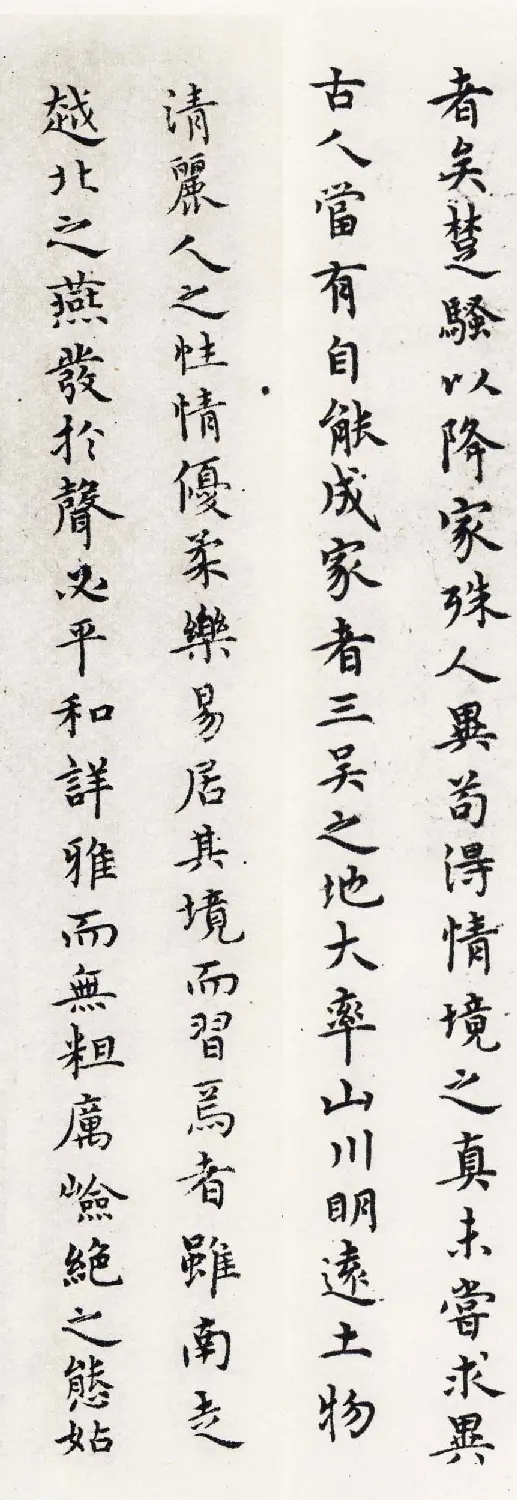 者矣楚騷以降家殊人異苟得情境之真未嘗求異
古人當有自能成家者三吴之地大率山川明遠土物
清麗人之性情優柔樂易居其境而習焉者雖南走
越北之燕發於聲必平和詳雅而無粗厲嶮絶之態姑